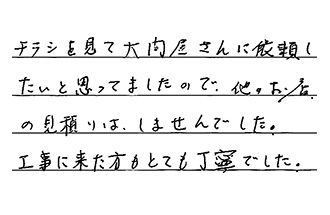 チラシを見て大問屋さんに依頼し
たいと思ってましたので、他のお店
の見積りは、しませんでした。
工事に来た方もとても丁寧でした。